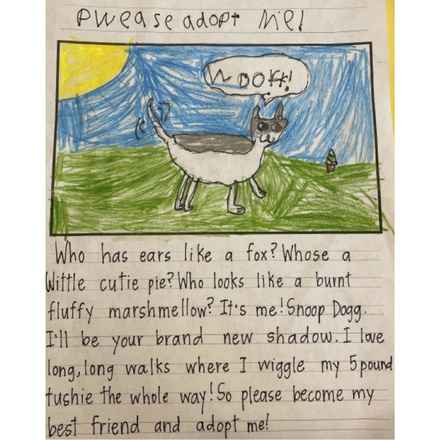 Pwease adopt Me!
WOOF!
Who has ears like a fox? Whose a
wittle cutie pie? Who looks like a burnt
fluffy marshmellow? It's me! Snoop Dogg.
I'll be your brand new shadow. I love
long, long walks where I wiggle my 5 pound
tushie the whole way! So please become my
best friend and adopt me!